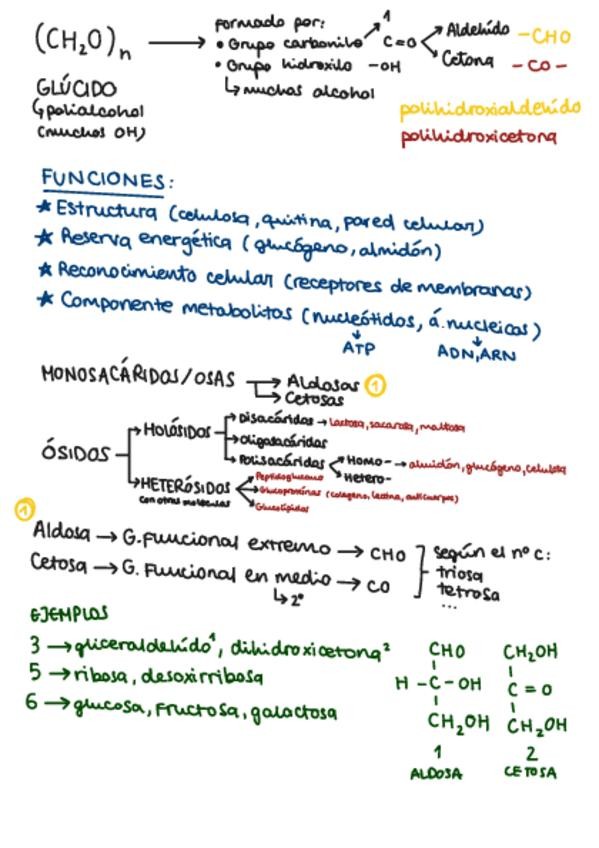 (CH₂O)n → formado por:
• Grupo carbonilo ↗¹ C=O Aldehído -CHO
• Grupo hidroxilo -OH Cetona -CO-
↳ muchos alcohol
GLÚCIDO
↳ polialcohol
(muchos OH)
polihidroxialdehído
polihidroxicetona
FUNCIONES:
★ Estructura (celulosa, quitina, pared celular)
★ Reserva energética (glucógeno, almidón)
★ Reconocimiento celular (receptores de membranas)
★ Componente metabolitos (nucleótidos, á. nucleicos)
ATP ADN, ARN
MONOSACÁRIDOS/OSAS → Aldosas 1
→ Cetosas
ÓSIDOS
→ HOLÓSIDOS
→ Disacáridos → lactosa, sacarosa, maltosa
→ Oligosacáridos
→ Polisacáridos Homo- → almidón, glucógeno, celulosa
Hetero-
→ HETERÓSIDOS
con otras moléculas
Peptidoglucano
Glucoproteínas (colágeno, lectina, anticuerpos)
Glucolípidos
1
Aldosa → G. Funcional extremo → CHO
Cetosa → G. Funcional en medio → CO
↳ 2º
según el nº C:
triosa
tetrosa
...
EJEMPLOS
3 → gliceraldehído¹, dihidroxicetona²
5 → ribosa, desoxirribosa
6 → glucosa, fructosa, galactosa
CHO
H - C - OH
CH₂OH
1
ALDOSA
CH₂OH
C = O
CH₂OH
2
CETOSA